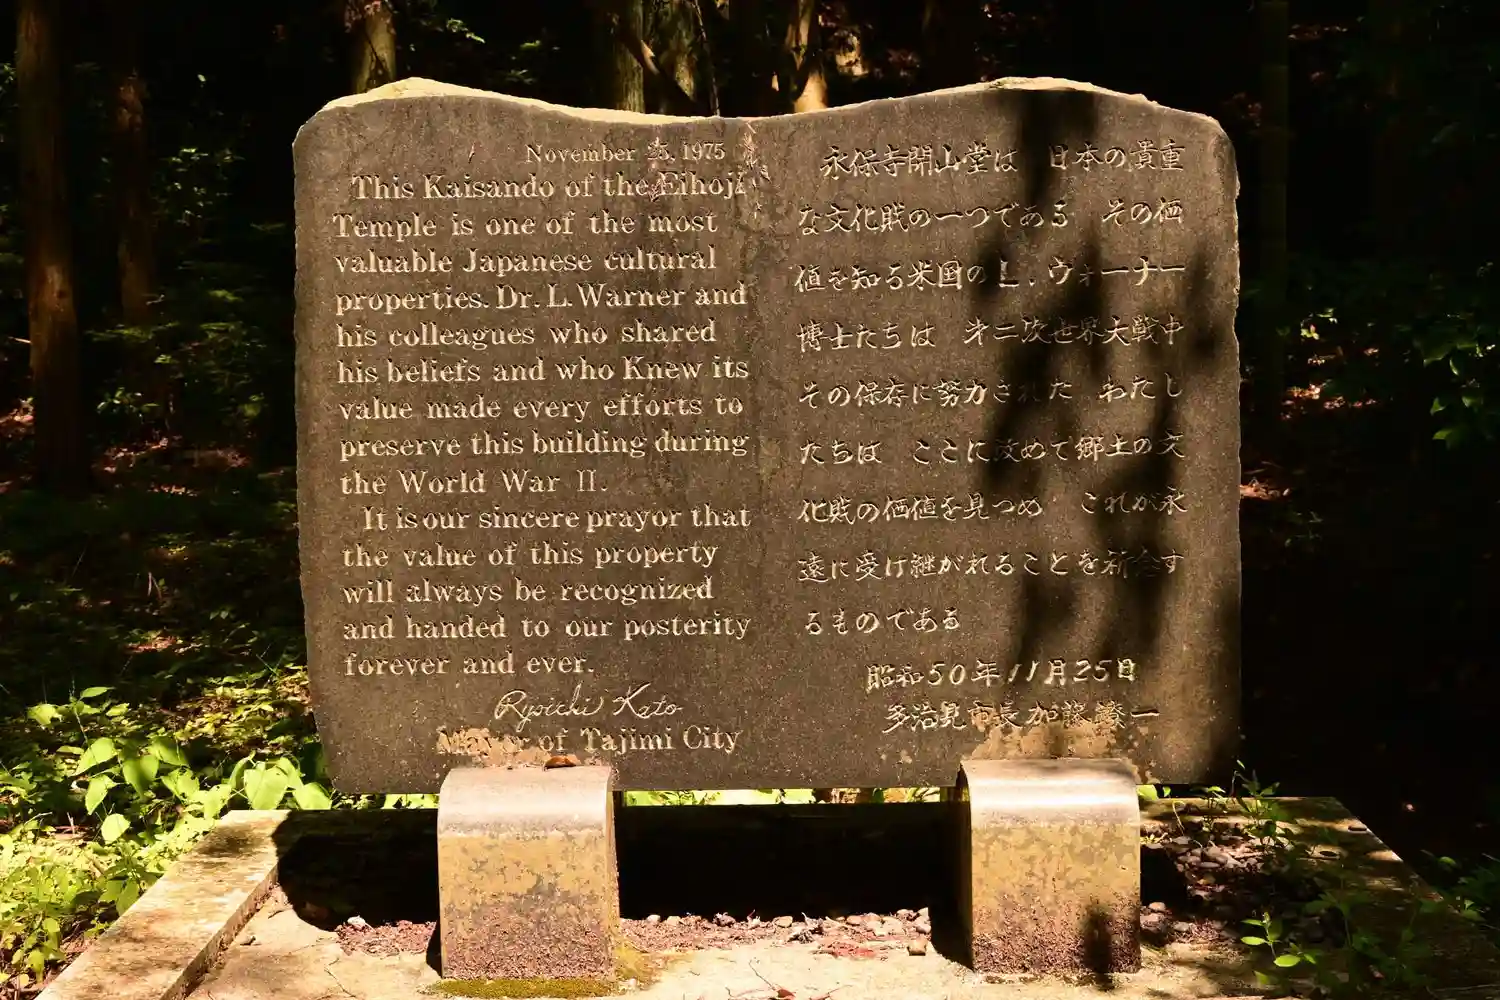 November 25, 1975
This Kaisando of the Eihoji
Temple is one of the most
valuable Japanese cultural
properties. Dr. L. Warner and
his colleagues who shared
his beliefs and who Knew its
value made every efforts to
preserve this building during
the World War II.
It is our sincere prayor that
the value of this property
will always be recognized
and handed to our posterity
forever and ever.
Ryoichi Kato
Mayor of Tajimi City
永保寺開山堂は 日本の貴重
な文化財の一つである その価
値を知る米国のL.ウォーナー
博士たちは 才二次世界大戦中
その保存に努力された わたし
たちは ここに改めて郷土の文
化財の価値を見つめ これが永
遠に受け継がれることを祈念す
るものである
昭和50年11月25日
多治見市長加藤 一